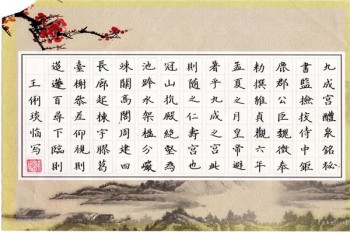 九成宫醴泉銘秘
書監檢校侍中鉅
鹿郡公臣魏徵奉
勅撰維貞觀六年
孟夏之月皇帝避
暑乎九成之宫此
則隨之仁壽宫也
冠山抗殿絶壑為
池跨水架楹分巖
竦闕高閣周建四
長廊起棟宇膠葛
臺榭參差仰視則
迢遰百尋下臨則
王俐琰写